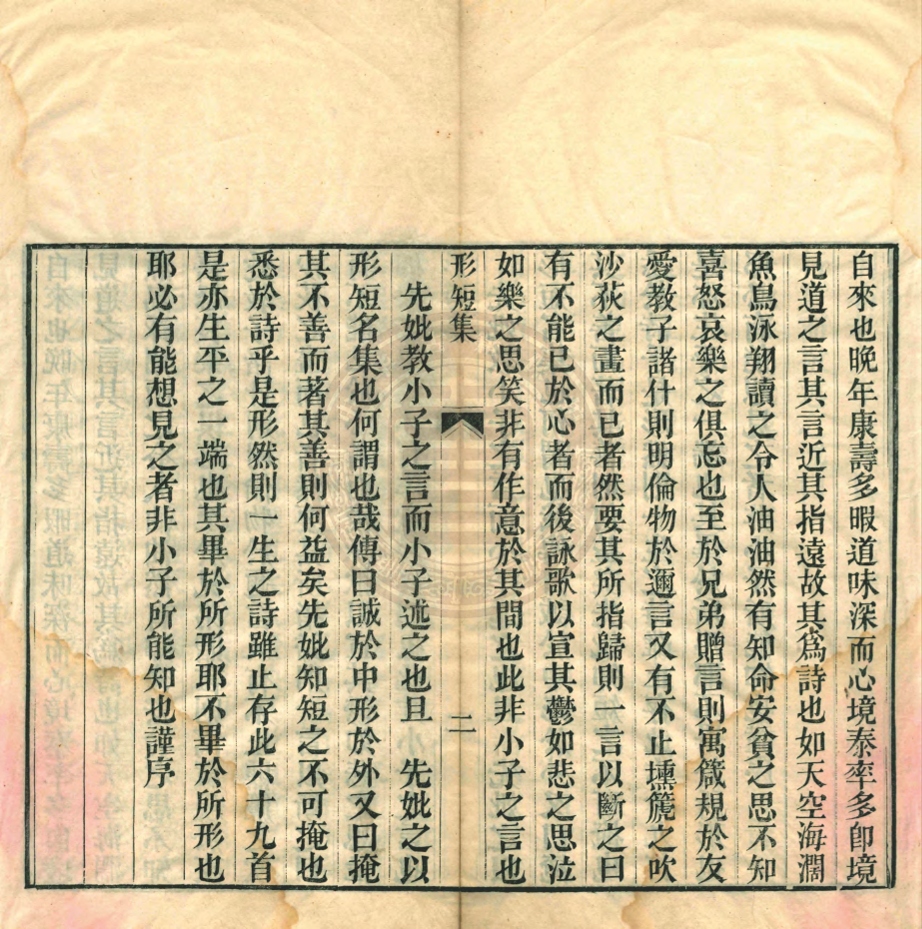 自來也晚年康壽多暇道味深而心境泰率多卽境
見道之言其言近其指遠故其爲詩也如天空海濶
魚鳥泳翔讀之令人油油然有知命安貧之思不知
喜怒哀樂之俱忘也至於兄弟贈言則寓箴規於友
愛教子諸什則明倫物於邇言又有不止壎篪之吹
沙荻之畫而已者然要其所指歸則一言以斷之曰
有不能已於心者而後詠歌以宣其鬱如悲之思泣
如樂之思笑非有作意於其間也此非小子之言也
形短集 二
先妣教小子之言而小子述之也且 先妣之以
形短名集也何謂也哉傳曰誠於中形於外又曰掩
其不善而著其善則何益矣先妣知短之不可掩也
悉於詩乎是形然則一生之詩雖止存此六十九首
是亦生平之一端也其畢於所形耶不畢於所形也
耶必有能想見之者非小子所能知也謹序